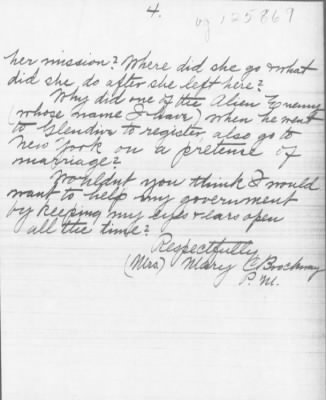 4.
og 125869
her mission? Where did she go & what
did she do after she left here?
Why did one of the Alien Enemy
(whose name I have) when he went
to Glendive to register, also go to
New York on a pretense of
marriage?
Wouldnt you think I would
want to help my government
by keeping my eyes & ears open
all the time?
Respectfully
(Mrs) Mary C Brockway
P. M.